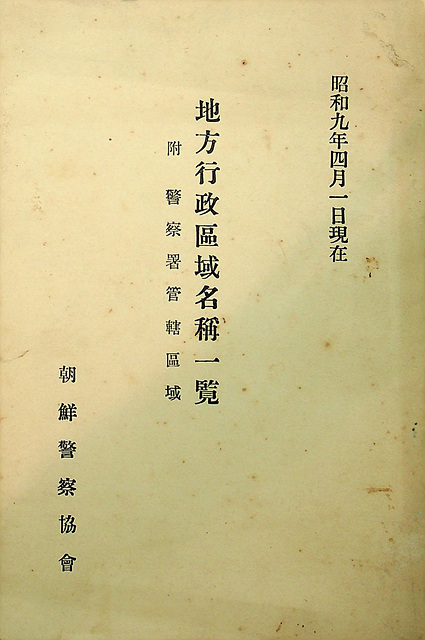 昭和九年四月一日現在
地方行政區域名稱一覽
附警察署管轄區域
朝鮮警察協會